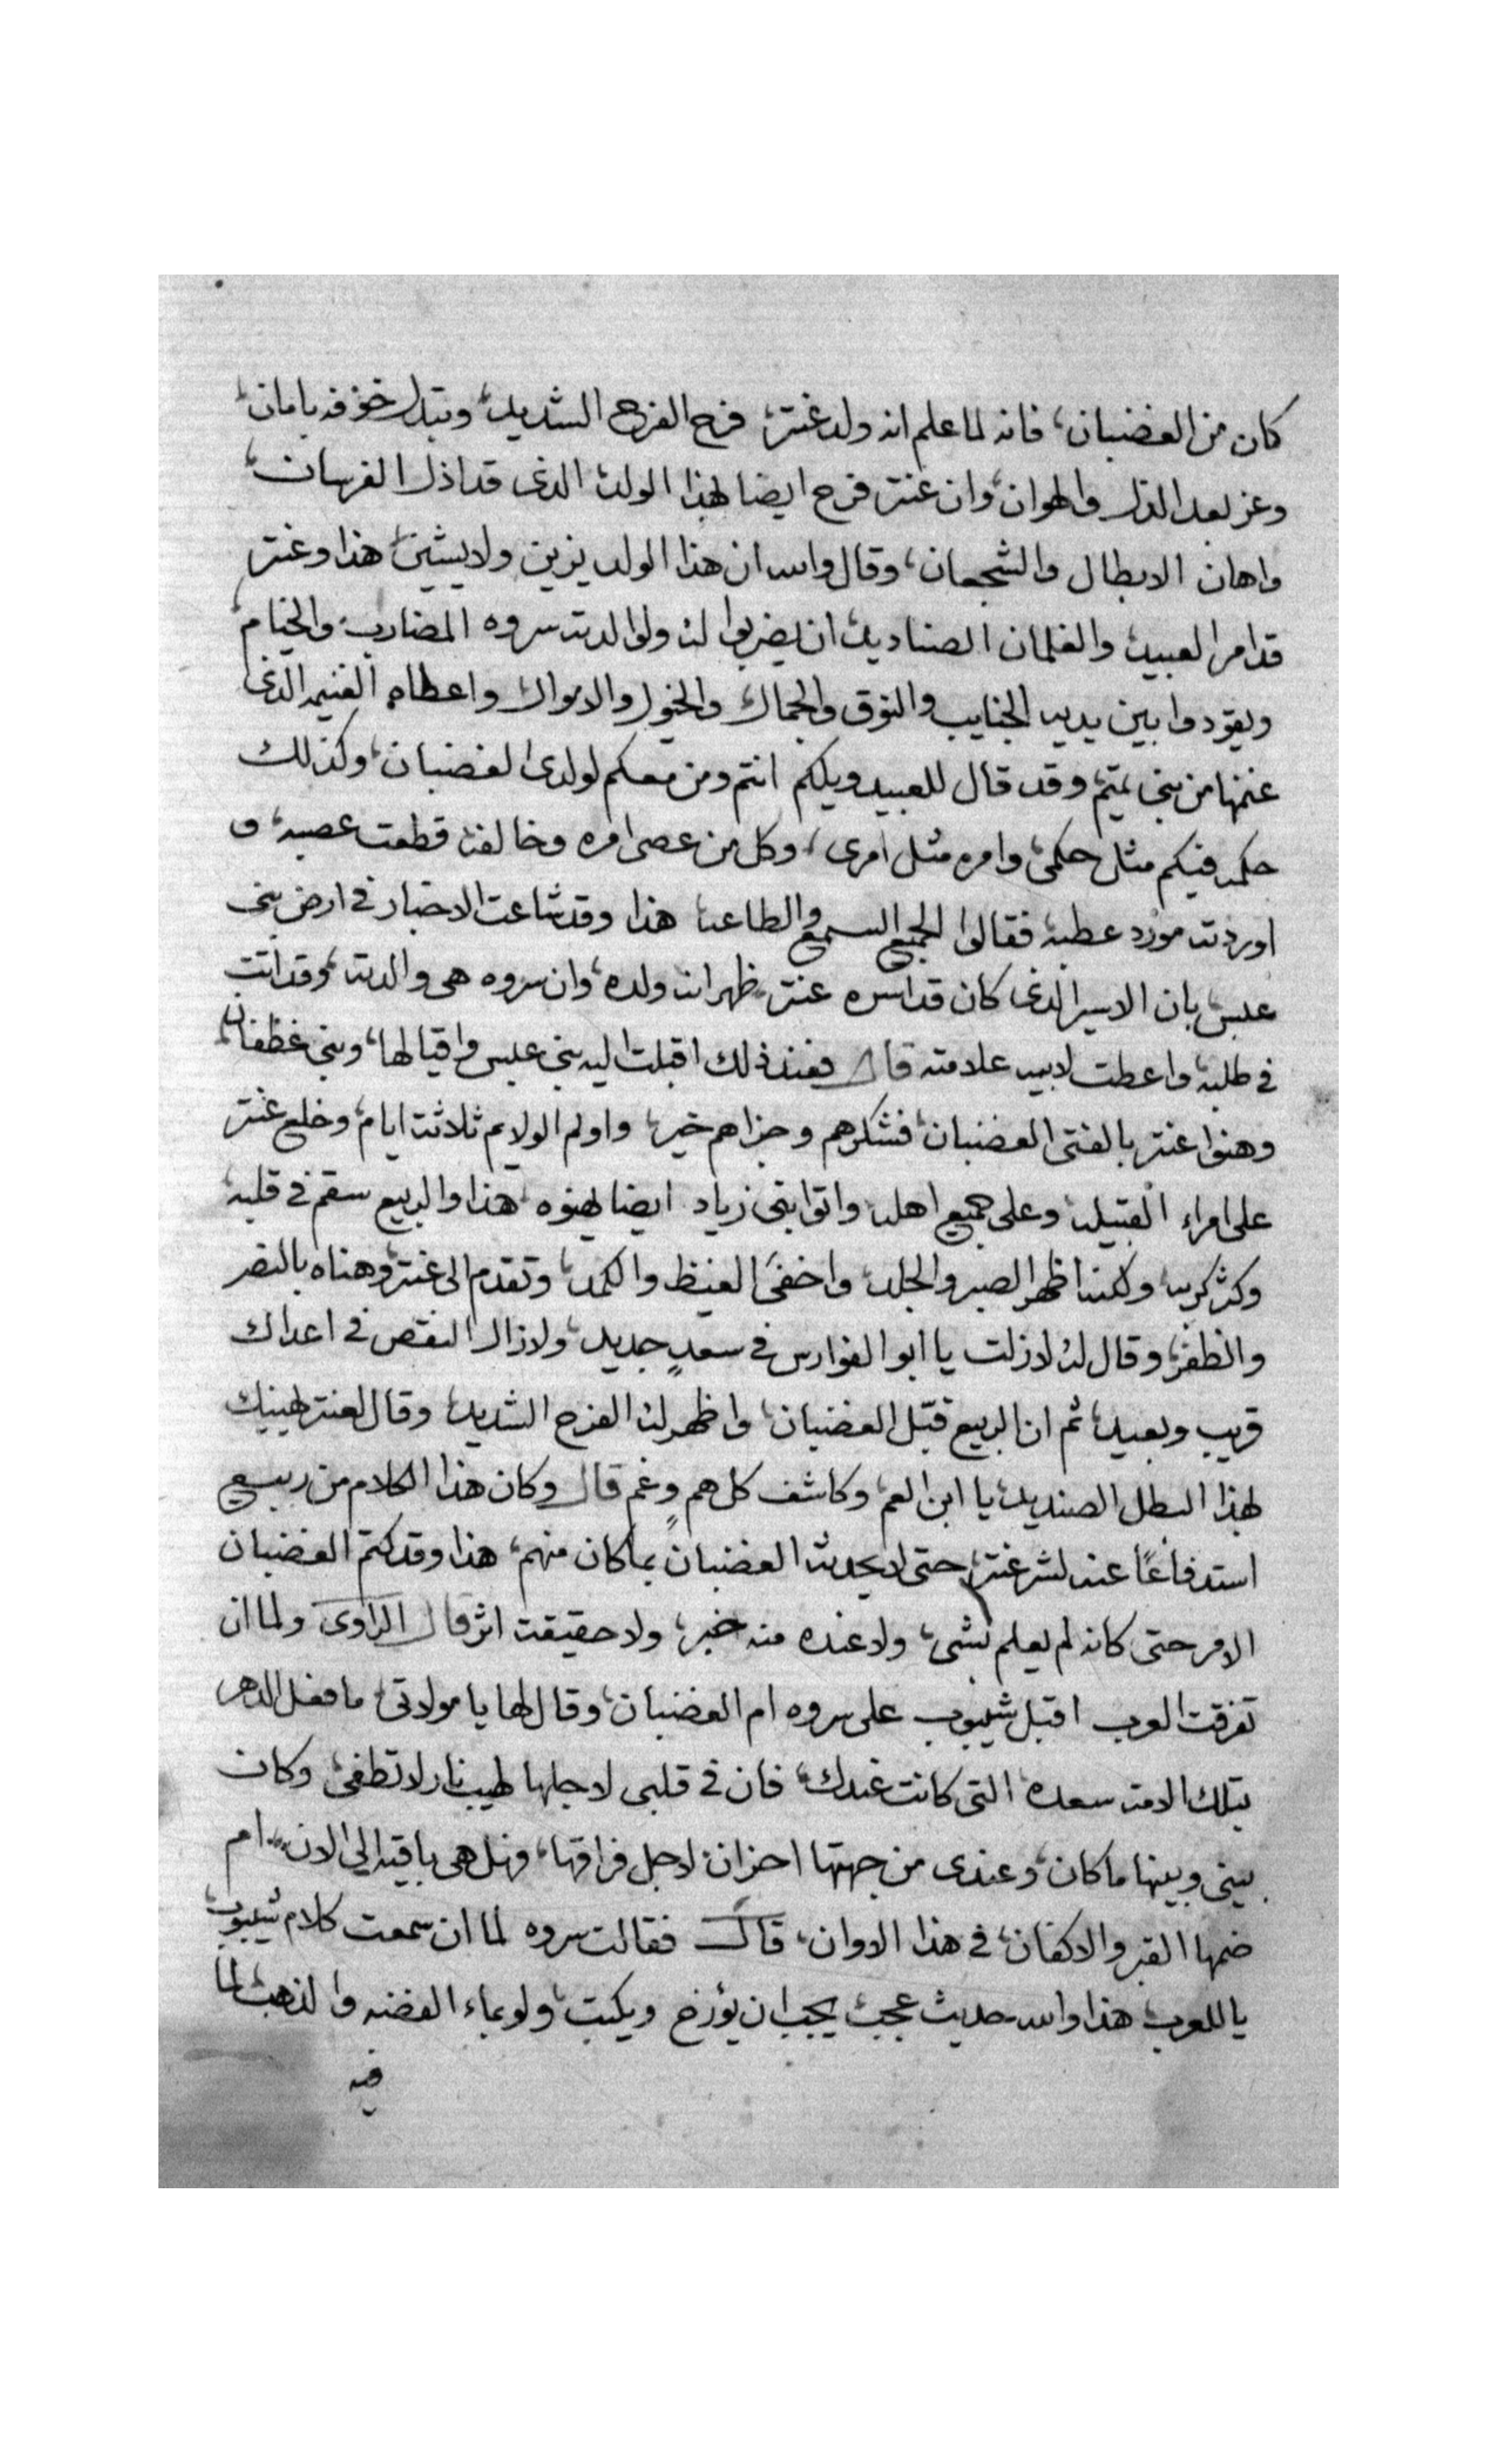 كان من الغضبان، فانه لما علم انه ولد عنتر، فرح الفرح الشديد، وتبدل خوفه بامان،
وعز بعد الذل والهوان، وان عنتر فرح ايضا بهذا الولد، الذى قد اذل الفرسان،
واهان الابطال والشجعان، وقال والله ان هذا الولد يزين ولا يشين، هذا وعنتر
قد امر العبيد، والغلمان الصناديد، ان يضربوا له ولوالدته سروه المضارب، والخيام،
ويقودوا بين يديه الجنايب والنوق والجمال، والخيول والاموال واعطاه الغنيمه الذى
غنمها من بنى تميم، وقد قال للعبيد ويلكم انتم ومن معكم لولدى الغضبان، وكذلك
حكمه فيكم مثل حكمى، وامره مثل امرى، وكل من عصى امره وخالفه، قطعت عصبه، و
اوردته مورد عطبه، فقالوا الجميع السمع والطاعه هذا وقد شاعت الاخبار فى ارض بنى
عبس، بان الاسير الذى كان قد اسره عنتر، ظهر انه ولده، وان سروه هى والدته، وقد اتت
فى طلبه، واعطت لابيه علامته قال فعند ذلك اقبلت اليه بنى عبس واقيالها، وبنى غطفان
وهنوا عنتر بالفتى الغضبان، فشكرهم وجزاهم خير، واولم الولايم ثلاثة ايام، وخلع عنتر
على امراء القبيله، وعلى جميع اهله واتوا بنى زياد ايضا يهنوه، هذا والربيع سقم فى قلبه،
وكثر كربه، ولكنه اظهر الصبر والجلد، واخفى الغيظ والكمد، وتقدم الى عنتر، وهناه بالنصر
والظفر، وقال له لا زلت يا ابو الفوارس فى سعدٍ جديد، ولا زال النقص فى اعداك
قريب وبعيد، ثم ان الربيع قبّل الغضبان، واظهر له الفرح الشديد، وقال لعنتر يهنيك
بهذا البطل الصنديد، يا ابن العم، وكاشف كل همٍ وغم قال وكان هذا الكلام من ربيع
استدفاعًا عنه لشر عنتر، حتى لا يحدثه الغضبان بما كان منهم، هذا وقد كتم الغضبان
الامر حتى كانه لم يعلم بشى، ولا عنده منه خبر، ولا حقيقت اثر قال الراوى ولما ان
تفرقت العرب اقبل شيبوب على سروه ام الغضبان، وقال لها يا مولاتى، ما فعل الدهر
بتلك الامه سعده التى كانت عندك، فان فى قلبى لاجلها لهيب نار لا تطفى، وكان
بينى وبينها ما كان، وعندى من جهتها احزان، لاجل فراقها، فهل هى باقيه الى الان، ام
ضمها القبر والاكفان، فى هذا الاوان، قال فقالت سروه لما ان سمعت كلام شيبوب،
يا للعرب، هذا والله حديث عجب، يجب ان يؤرخ ويكتب، ولو بماء الفضه والذهب، لما
فيه